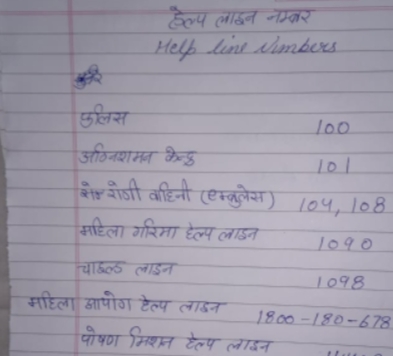 हेल्प लाइन नम्बर
Help line Numbers
पुलिस 100
अग्निशमन केन्द्र 101
रोगी वाहिनी (एम्बुलेंस) 104, 108
महिला गरिमा हेल्प लाइन 1090
चाइल्ड लाइन 1098
महिला आयोग हेल्प लाइन 1800-180-678
पोषण मिशन हेल्प लाइन